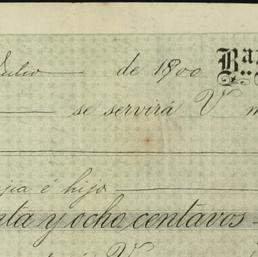 Julio de 1800 Ba
se servirá V m
jia é hijo
nta y ocho centavos
V